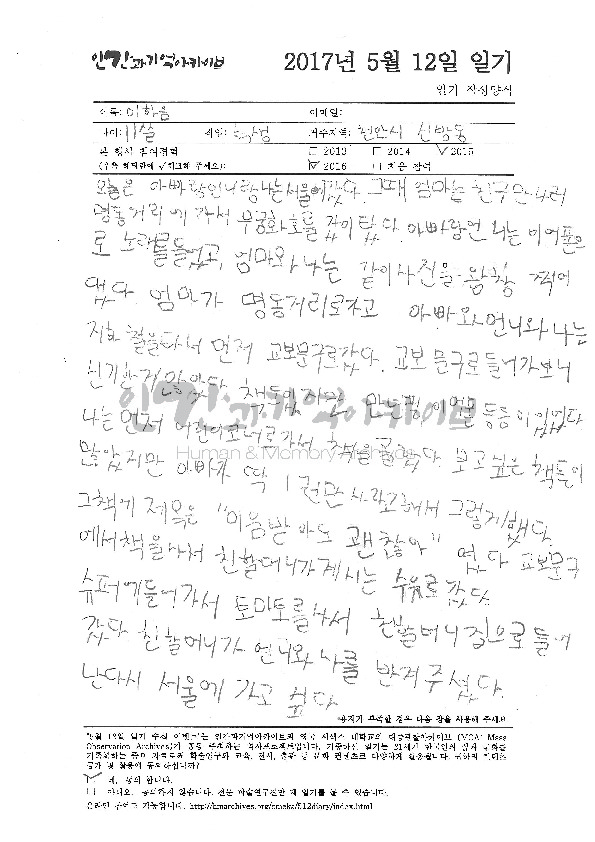 인간과기억아카이브
2017년 5월 12일 일기
일기 작성양식
이름: 이하음
이메일:
나이: 11살 직업: 학생 거주지역: 천안시 신방동
본 행사 참여경력 □ 2013 □ 2014 ☑ 2015
(우측 해당란에 ✓체크해 주세요): ☑ 2016 □ 처음 참여
오늘은 아빠랑언니랑나는서울에갔다. 그때 엄마는 친구만나러
명동거리에 가서 무궁화호를 같이 탔다. 아빠랑언니는 이어폰으
로 노래를들었고, 엄마와 나는 같이사진을 왕창 찍어
댔다. 엄마가 명동거리로가고 아빠와언니와 나는
지하철을타서 먼저 교보문구로갔다. 교보문구로들어가보니
신기한게 많았다 책도있
나는 먼저 어린이코너로가서 책을골랐다. 보고싶은 책들이
많았지만 아빠가 딱 1권만 사라고해서 그렇게했다
그책에 제목은 "미움받아도 괜찮아" 였다 교보문구
에서책을사서 친할머니가계시는 수유로갔다
슈퍼에들어가서 토마토를사서 친할머니집으로들어
갔다 친할머니가 언니와나를 반겨주셨다.
난다시 서울에 가고 싶다.
용지가 부족할 경우 다음 장을 사용해 주세요
Human & Memory Archives
"5월 12일 일기 수집 이벤트"는 인간과기억아카이브와 영국 서섹스 대학교의 대중관찰아카이브 (MOA: Mass
Observation Archives)가 공동 주최하는 역사프로젝트입니다. 기증하신 일기는 21세기 한국인의 삶과 문화를
기록화하는 중요 자료로써 학술연구와 교육, 전시, 출판 등 문화 컨텐츠로 다양하게 활용됩니다. 귀하의 일기를
공개 및 활용에 동의하십니까?
☑ 네, 동의 합니다.
□ 아니오, 동의하지 않습니다. 전문 학술연구진만 제 일기를 볼 수 있습니다.
온라인 참여도 가능합니다. http://hmarchives.org/omeka/512diary/index.html